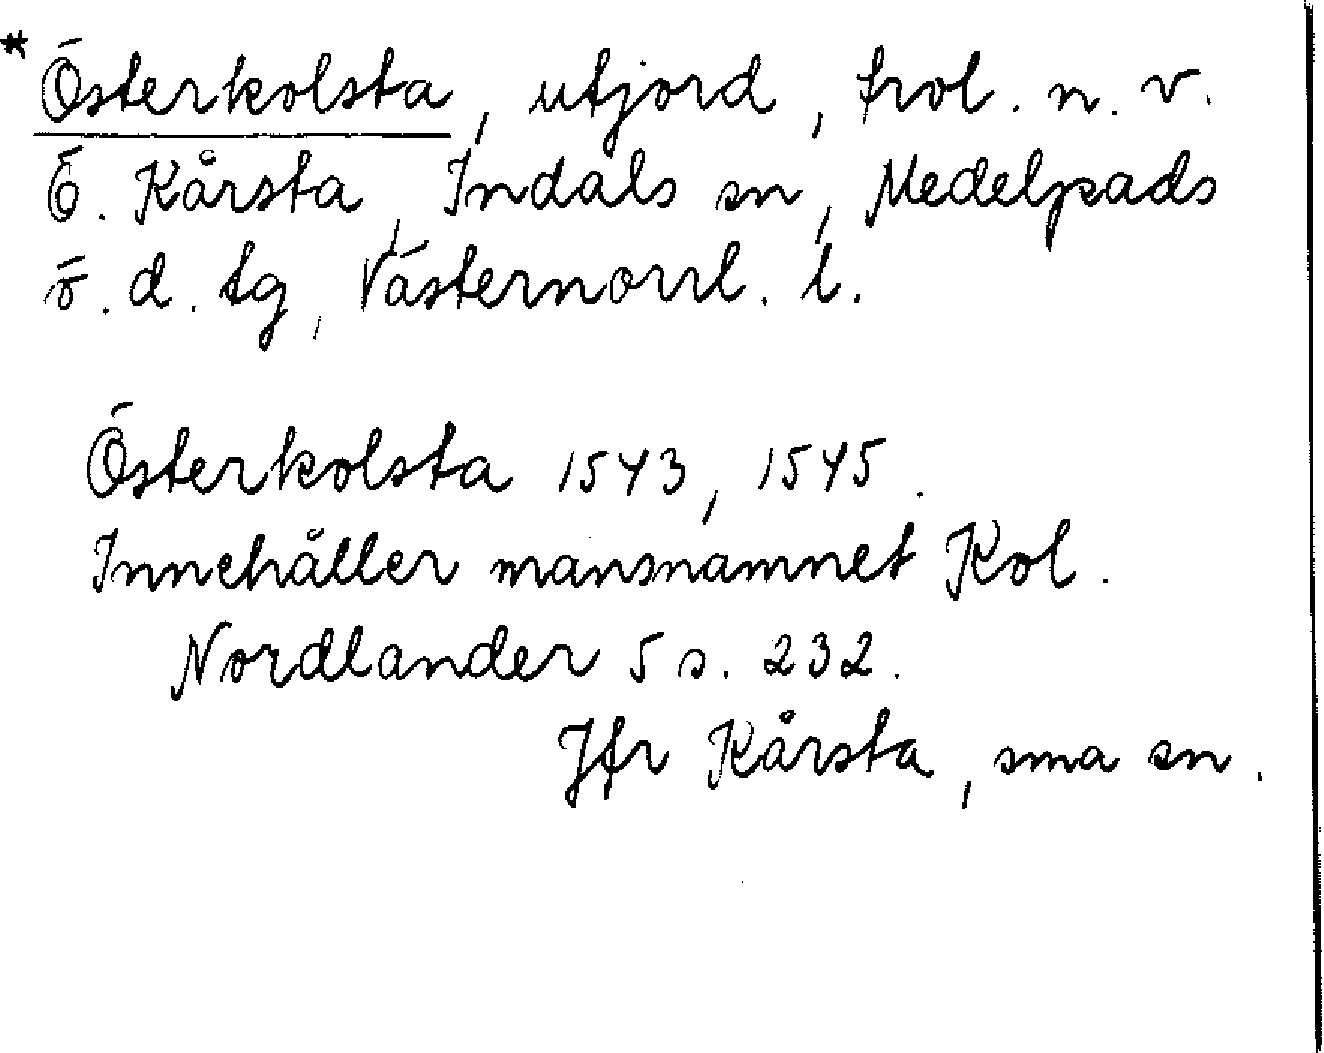 * Österkolsta, utjord, trol. n. v.
Ö. Kårsta, Indals sn, Medelpads
ö. d. tg, Västernorrl. l.
Österkolsta 1543, 1545.
Innehåller mansnamnet Kol.
Nordlander 5 s. 232.
Jfr Kårsta, sma sn.